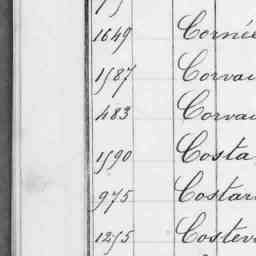 1649 Cornée
1587 Corvai
483 Corvai
1590 Costa
975 Costar
1255 Costev